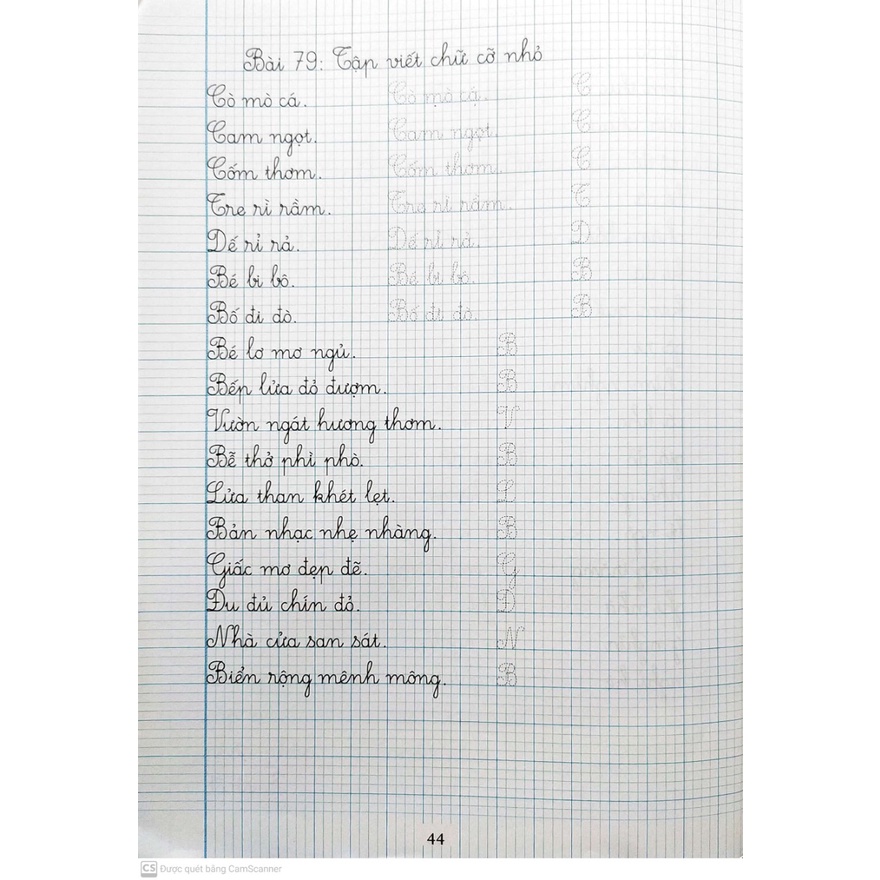 Bài 79: Tập viết chữ cỡ nhỏ
Cò mò cá. Cò mò cá. C
Cam ngọt. Cam ngọt. C
Cốm thơm. Cốm thơm. C
Tre rì rầm. Tre rì rầm. T
Dế rỉ rả. Dế rỉ rả. D
Bé bi bô. Bé bi bô. B
Bố đi đò. Bố đi đò. B
Bé lơ mơ ngủ. B
Bếp lửa đỏ đượm. B
Vườn ngát hương thơm. V
Bễ thở phì phò. B
Lửa than khét lẹt. L
Bản nhạc nhẹ nhàng. B
Giấc mơ đẹp đẽ. G
Đu đủ chín đỏ. D
Nhà cửa san sát. N
Biển rộng mênh mông. B
44
CS Được quét bằng CamScanner